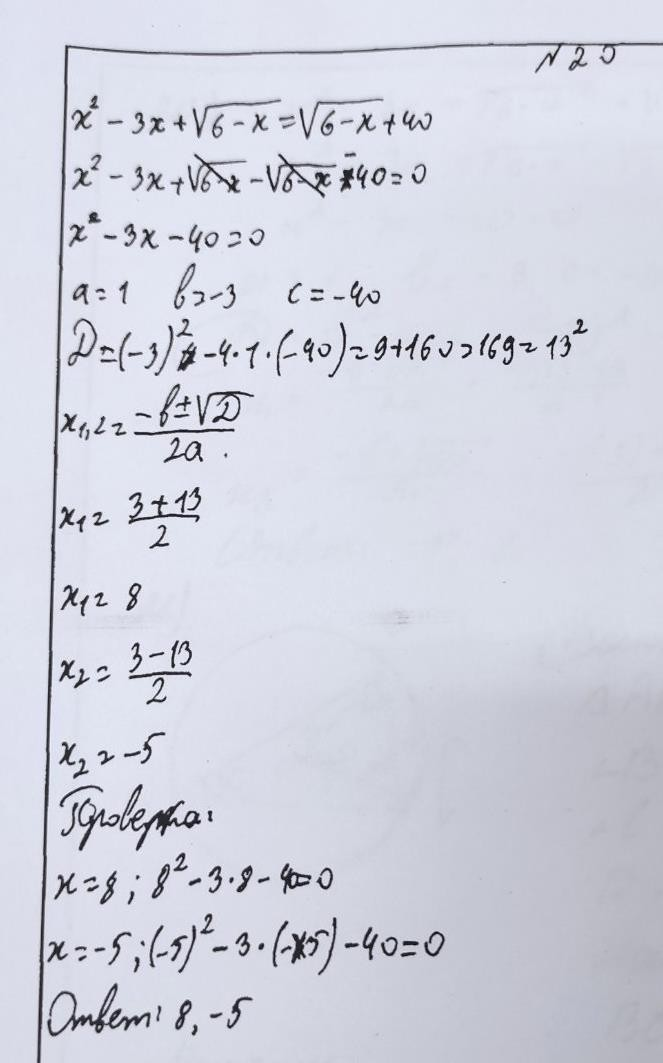 N 20
x² - 3x + √6-x = √6-x + 40
x² - 3x + √6-x - √6-x - 40 = 0
x² - 3x - 40 = 0
a = 1 b = -3 c = -40
D = (-3)² - 4 · 1 · (-40) = 9 + 160 = 169 = 13²
x₁,₂ = (-b ± √D) / 2a
x₁ = (3 + 13) / 2
x₁ = 8
x₂ = (3 - 13) / 2
x₂ = -5
Проверка:
x = 8; 8² - 3 · 8 - 40 = 0
x = -5; (-5)² - 3 · (-5) - 40 = 0
Ответ: 8, -5